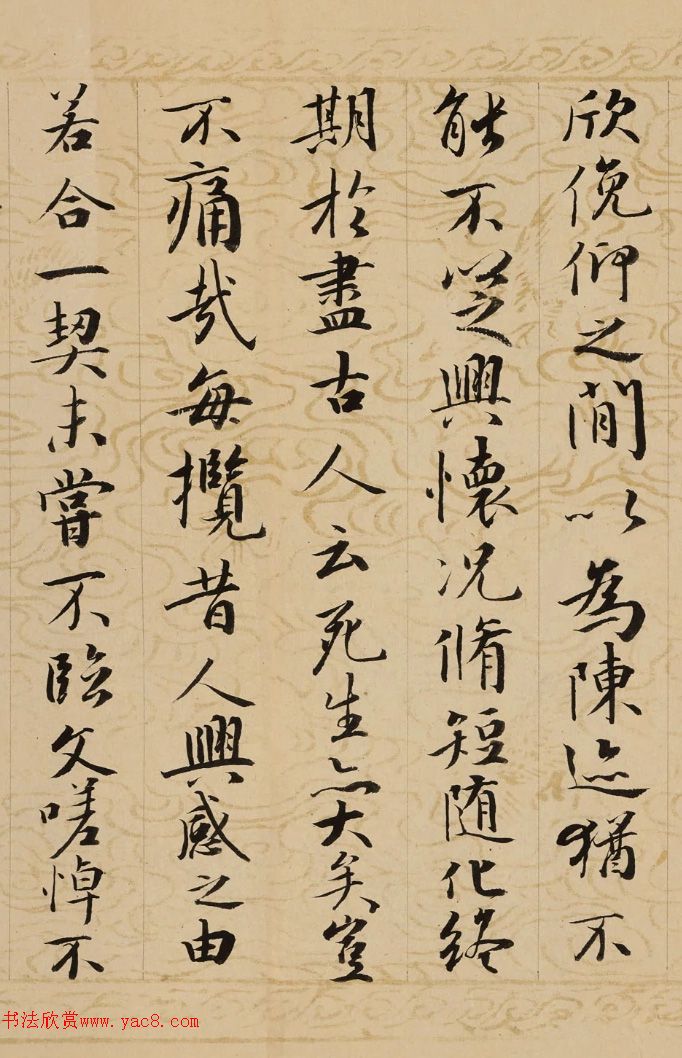 欣俛仰之閒以為陳迹猶不
能不以之興懷況脩短随化終
期於盡古人云死生亦大矣豈
不痛哉每攬昔人興感之由
若合一契未嘗不臨文嗟悼不
书法欣赏www.yac8.com